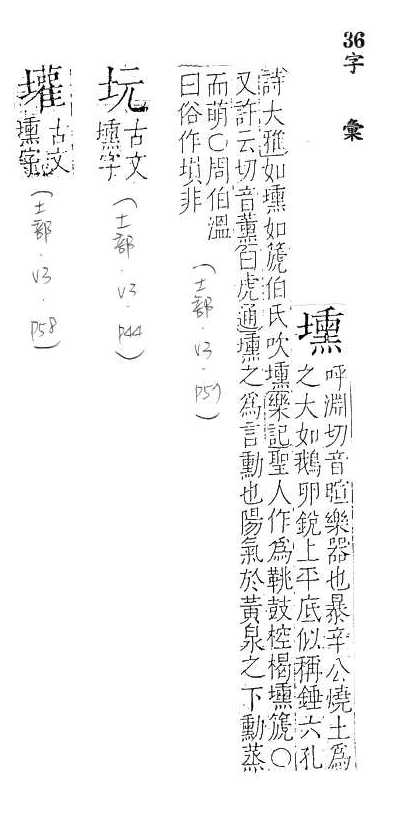 36 字彙
壎
呼淵切音暄樂器也暴辛公燒土爲
之大如鵝卵銳上平底似稱錘六孔
詩大雅如壎如篪伯氏吹壎樂記聖人作爲鞉鼓椌楬壎篪○
又許云切音薰白虎通壎之爲言勳也陽氣於黃泉之下勳蒸
而萌○周伯溫
曰俗作塤非
(土部.V3.
坃
古文
壎字
(土部.V3.P44)
古文
壎字
(土部.V3.P58)